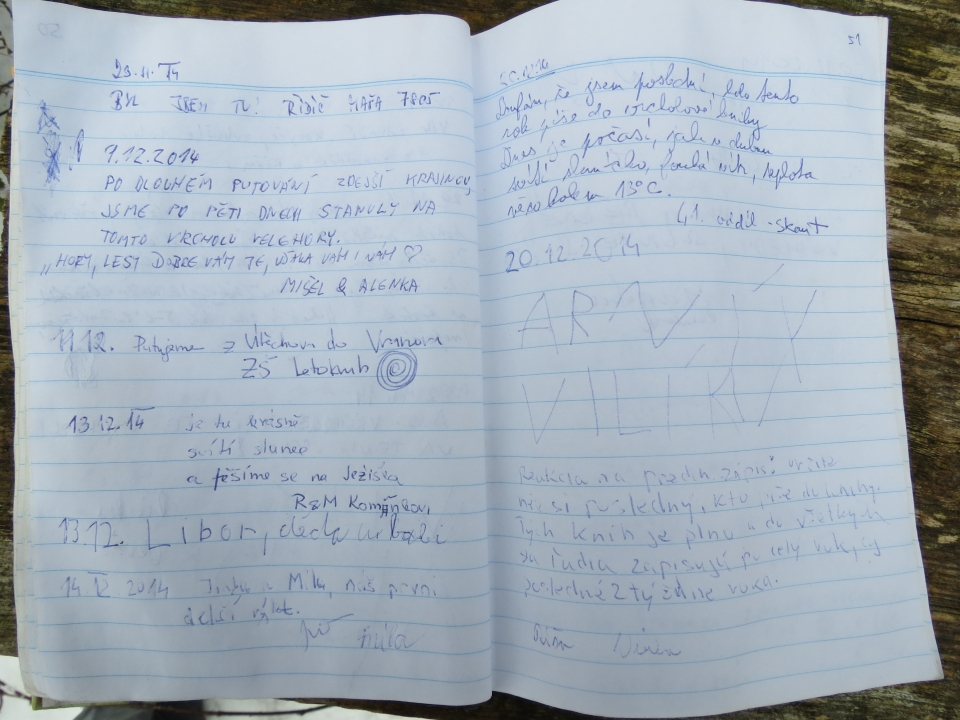 BYL JSEM TU! ŘIDIČ
9.12.2014
PO DLOUHÉM PUTOVÁNÍ ZDEJŠÍ KRAJINOU,
JSME PO PĚTI DNECH STANULY NA
TOMTO VRCHOLU VELEHORY.
„HORY, LESY DOBRE VÁM JE,
MIŠEL & ALENKA
11.12. Putujeme z Útěchova do Vranova
ZŠ Letokruh
13.12.14 je tu krásně
svítí slunce
a těšíme se na Ježíška
R&M
13.12. Libor,
14 XII 2014 a náš první
delší výlet.
Míla
51
Doufám, že jsem poslední, kdo tento
rok píše do vrcholové knihy
Dnes je počasí, jak v dubnu
svítí sluníčko, fouká vítr, teplota
něco kolem 13°C.
41. oddíl - skaut
20.12.2014
VILÍK
Reakcia na zápis: určite
nie si posledný, kto píše do knihy.
Tých kníh je plno a do všetkých
sa ľudia zapisujú po celý rok, aj
posledné 2 týždne roka.